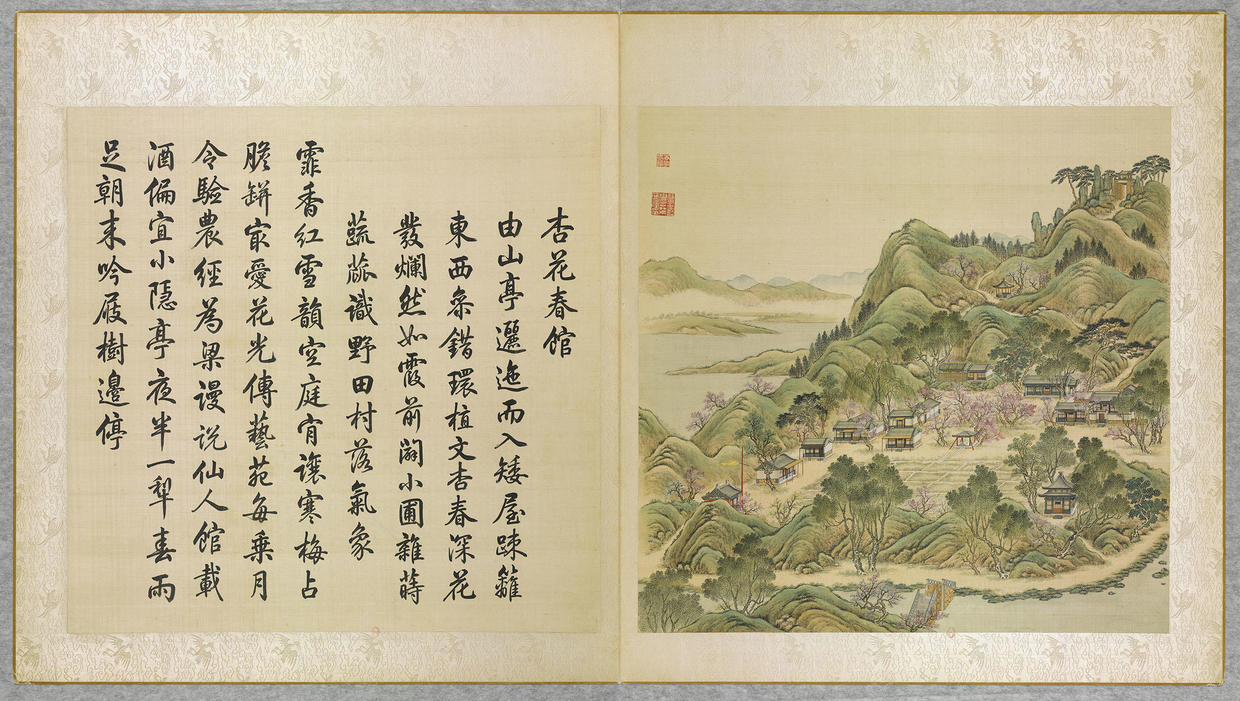 杏花春館
由山亭邐迤而入矮屋疎籬
東西糸錯環植文杏春深花
發爛然如霞前闢小圃雜蒔
蔬蓏識野田村落氣象
霏香紅雪韻空庭肯讓寒梅占
膽缾㝡愛花光傳藝苑每乗月
令驗農經為梁謾說仙人館載
酒偏宜小隱亭夜半一犂春雨
足朝来吟屐樹邊停